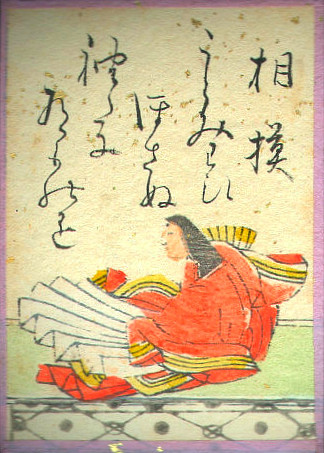 相模
うらみわひ
ほさぬ
袖たに
あるものを